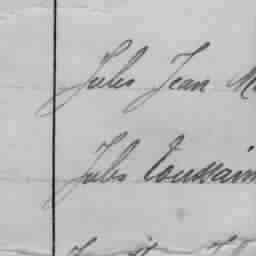 Jules Jean M
Jules Toussain